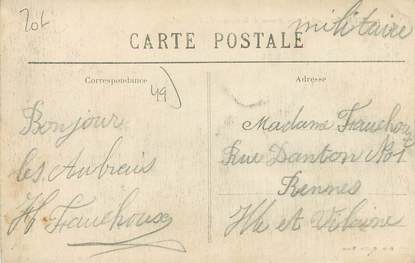 militaire
CARTE POSTALE
Correspondance
Adresse
49
Bonjour
les Aubrais
Madame
Rue Danton No 1
Rennes
Ille et Vilaine